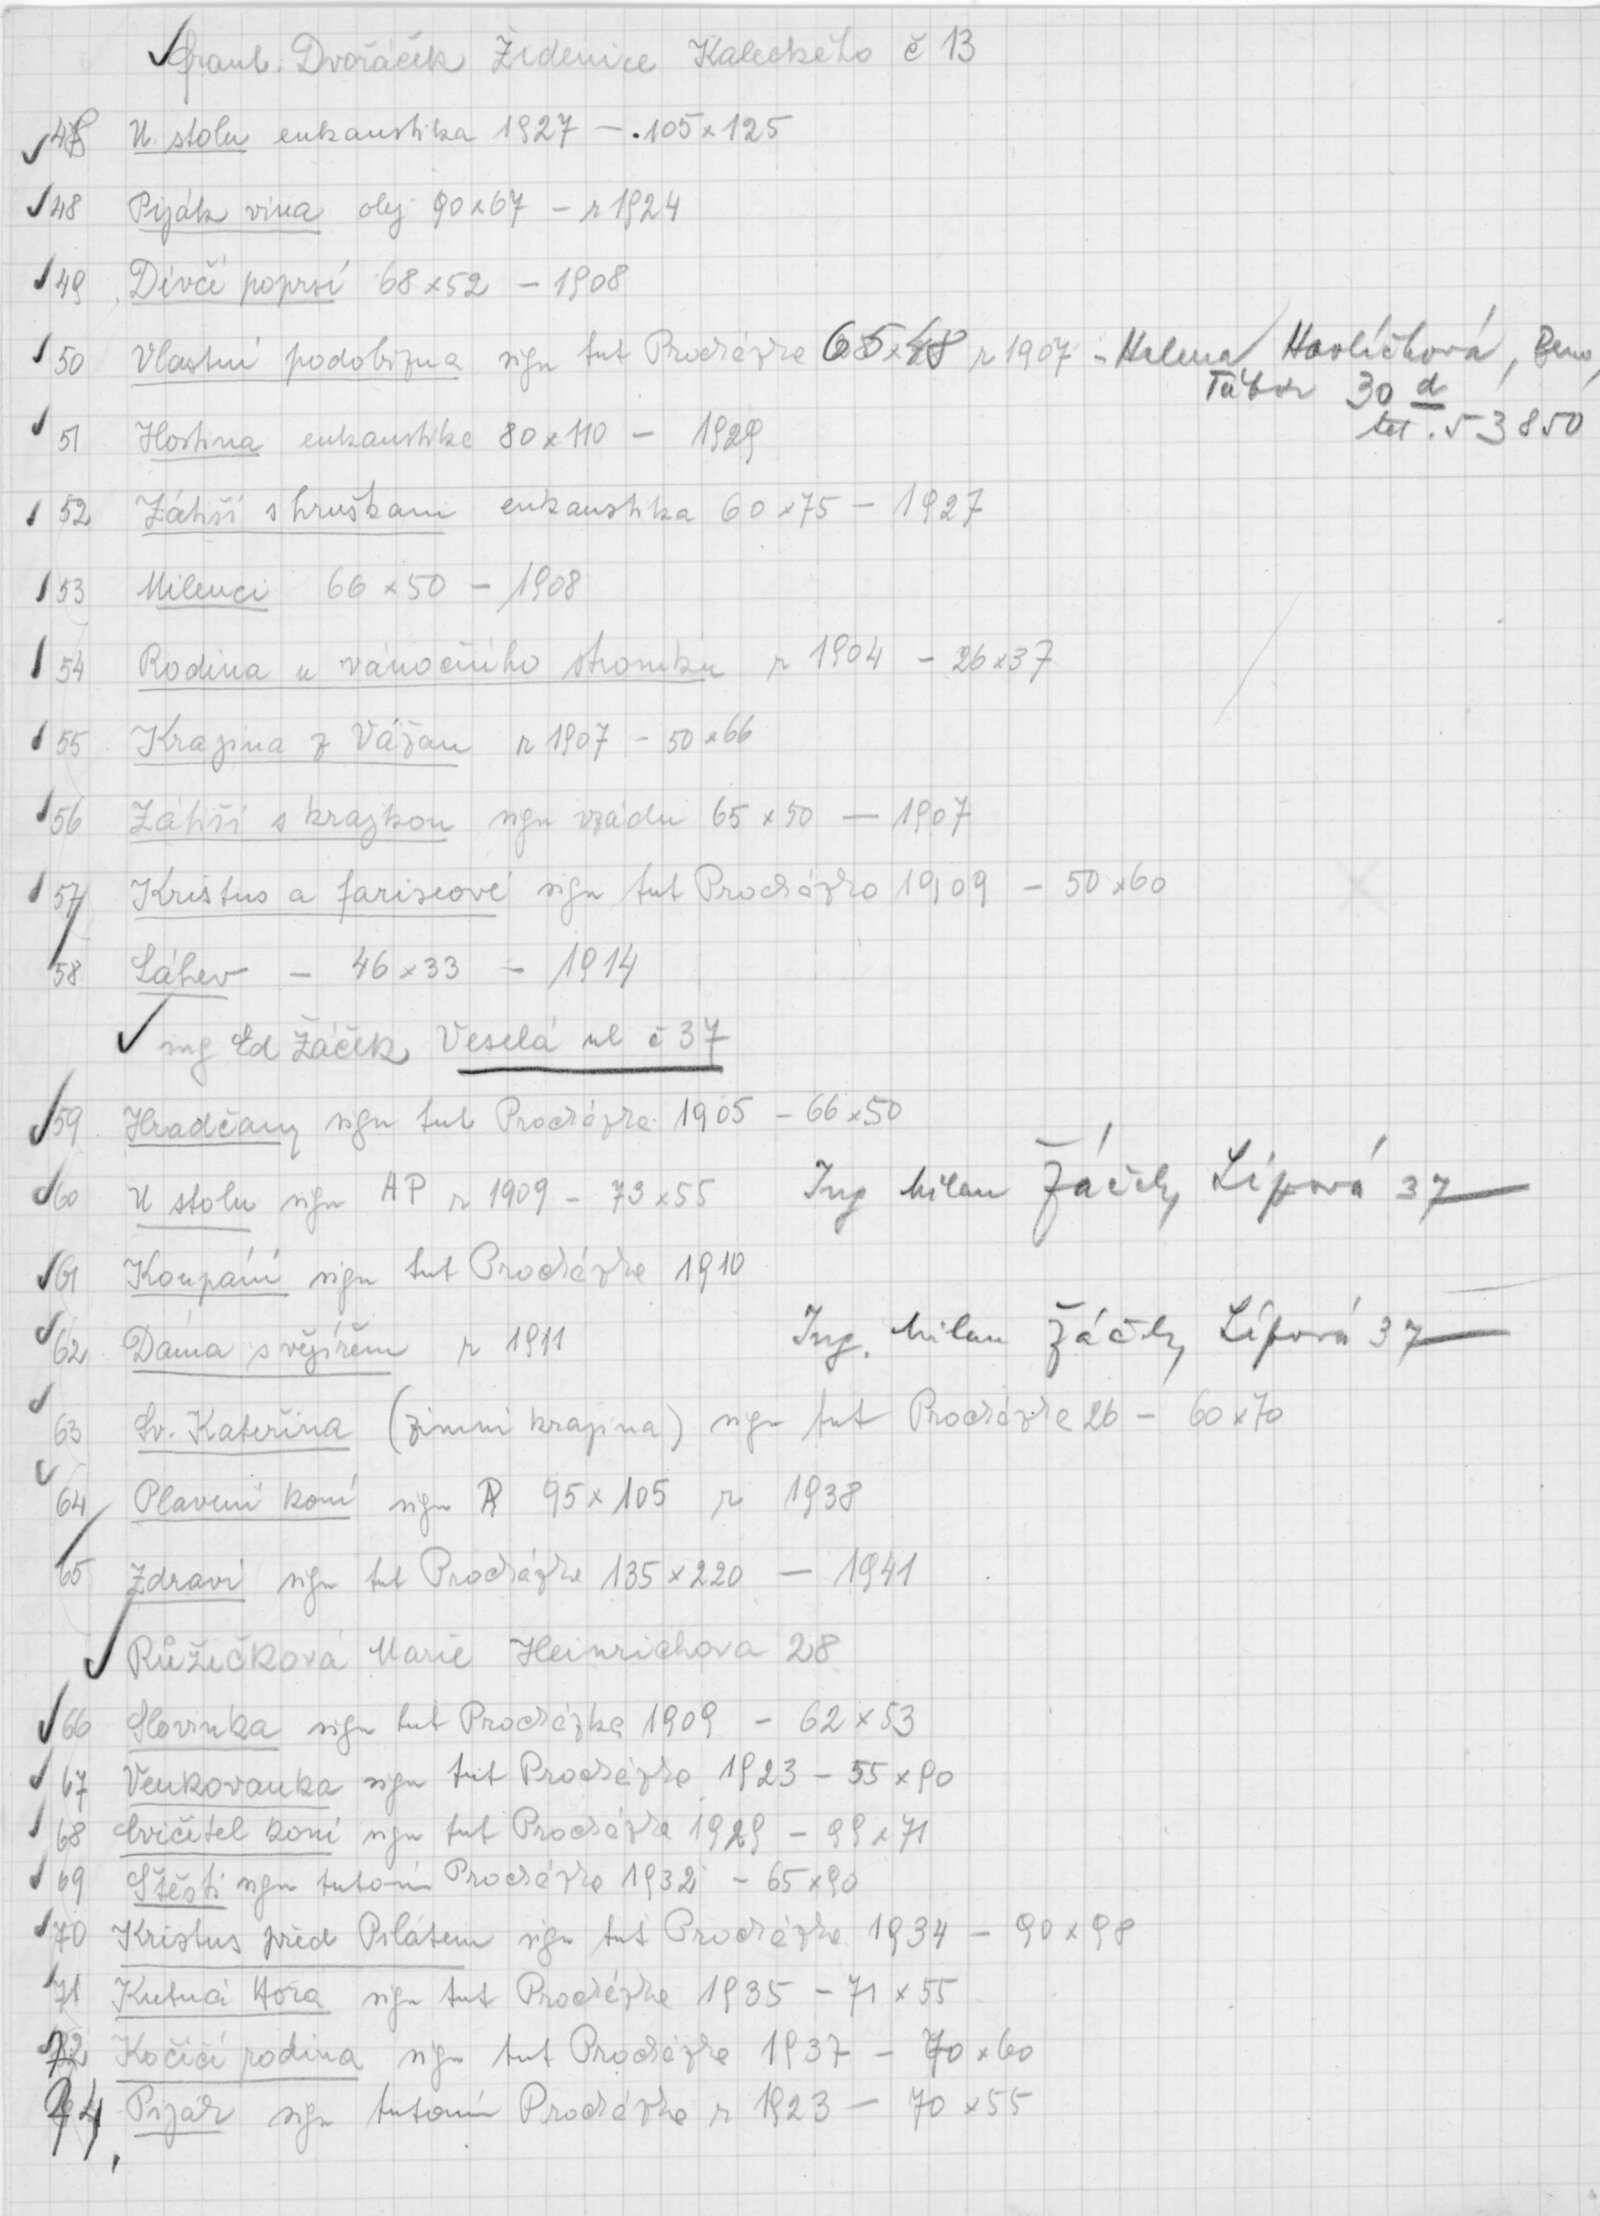 Frant. Dvořáček Židenice Kaleckého č 13
47 U stolu enkaustika 1927 – 105×125
48 Piják vína olej 90×67 – r 1924
49 Dívčí poprsí 68×52 – 1908
50 Vlastní podobizna sign tut Procházka 65×48 r 1907 – Helena Havlíčková, Brno,
Tábor 30 d
tel. 53850
51 Hostina enkaustika 80×110 – 1929
52 Zátiší s hruškami enkaustika 60×75 – 1927
53 Milenci 66×50 – 1908
54 Rodina u vánočního stromku r 1904 – 26×37
55 Krajina z Vážan r 1907 – 50×66
56 Zátiší s krajkou sign vzadu 65×50 – 1907
57 Kristus a fariseové sign tut Procházka 1909 – 50×60
58 Láhev – 46×33 – 1914
ing Ed Žáček Veselá ul č 37
59 Hradčany sign tut Procházka 1905 – 66×50
60 U stolu sign AP r 1909 – 73×55 Ing Milan Žáček, Lipová 37
61 Koupání sign tut Procházka 1910
62 Dáma s vějířem r 1911 Ing. Milan Žáček, Lipová 37
63 Sv. Kateřina (zimní krajina) sign tut Procházka 26 – 60×70
64 Plavení koní sign 95×105 r 1938
65 Zdraví sign tut Procházka 135×220 – 1941
Růžičková Marie Heinrichova 28
66 Slovinka sign tut Procházka 1909 – 62×53
67 Venkovanka sign tut Procházka 1923 – 55×90
68 Cvičitel koní sign tut Procházka 1929 – 99×71
69 Štěstí sign tutoním Procházka 1932 – 65×90
70 Kristus před Pilátem sign tut Procházka 1934 – 90×98
71 Kutná Hora sign tut Procházka 1935 – 71×55
72 Kočičí rodina sign tut Procházka 1937 – 70×60
74. Piják sign tutoním Procházka r 1923 – 70×55